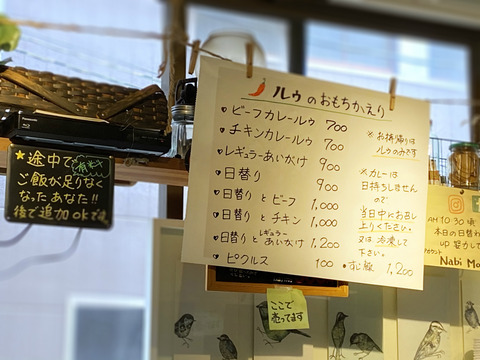 ルゥのおもちかえり
ビーフカレールゥ 700
チキンカレールゥ 700
レギュラーあいがけ 900
日替り 900
日替り と ビーフ 1,000
日替り と チキン 1,000
日替り と レギュラーあいがけ 1,200
ピクルス 100
1,200
※お持帰りは
ルゥのみです
※カレーは
日持ちしません
ので
当日中にお召し
上りください。
又は冷凍して
下さい。
★途中で
ご飯が足りなく
なったあなた!!
後で追加okです
有料
ここで
売ってます
AM 10:30 頃
本日の日替わ
up
アカウント
Nabi Mo